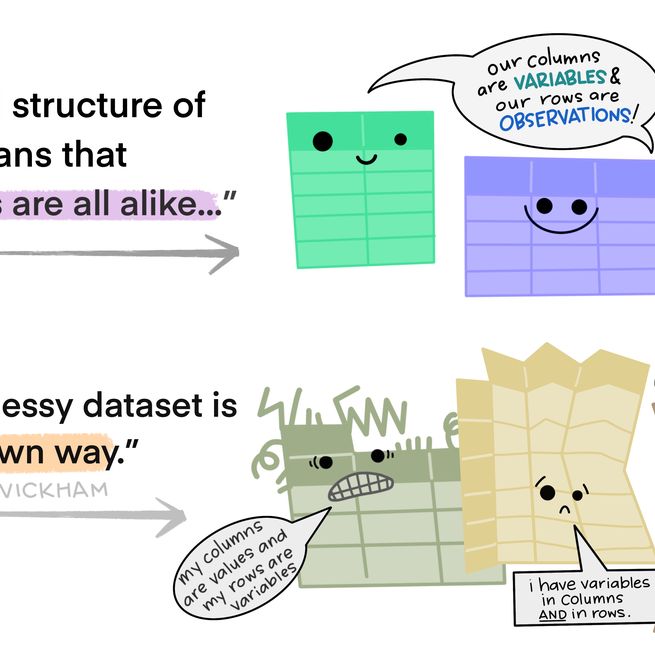 structure of
ans that
s are all alike...”
our columns
are VARIABLES &
our rows are
OBSERVATIONS!
essy dataset is
wn way.”
WICKHAM
my columns
are values and
my rows are
variables
i have variables
in columns
AND in rows.